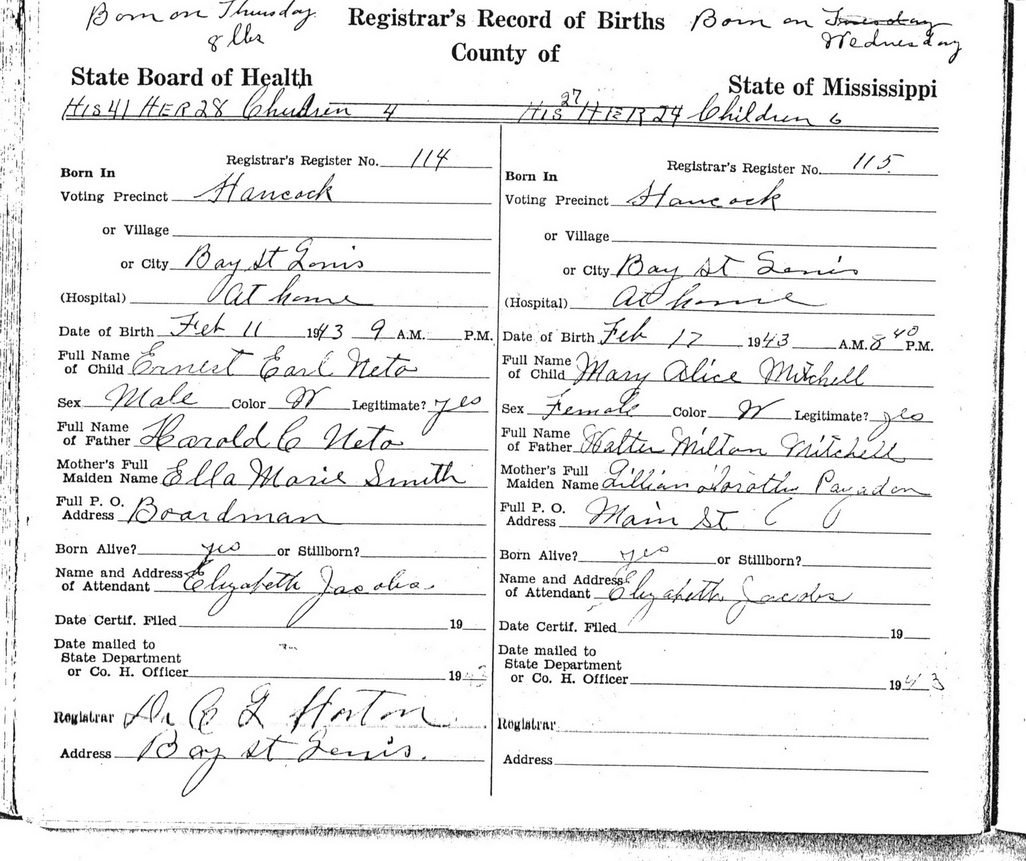 Born on Thursday
8 lbs
Registrar's Record of Births
County of
Born on Tuesday
Wednesday
State Board of Health
State of Mississippi
HIS 41 HER 28 Children 4
HIS 27 HER 24 Children 6
Registrar's Register No. 114
Born In
Voting Precinct Hancock
or Village
or City Bay St Louis
(Hospital) At home
Date of Birth Feb 11 1943 9 A.M. P.M.
Full Name
of Child Ernest Earl Neto
Sex Male Color W Legitimate? yes
Full Name
of Father Harold C Neto
Mother's Full
Maiden Name Ella Marie Smith
Full P. O.
Address Boardman
Born Alive? yes or Stillborn?
Name and Address
of Attendant Elizabeth Jacobs
Date Certif. Filed 19
Date mailed to
State Department
or Co. H. Officer 1943
Registrar Dr C L Horton
Address Bay St Louis.
Registrar's Register No. 115.
Born In
Voting Precinct Hancock
or Village
or City Bay St Louis
(Hospital) At home
Date of Birth Feb 17 1943 A.M. 8 40 P.M.
Full Name
of Child Mary Alice Mitchell
Sex Female Color W Legitimate? yes
Full Name
of Father Walter Milton Mitchell
Mother's Full
Maiden Name Lillian Dorothy
Full P. O.
Address Main St
Born Alive? yes or Stillborn?
Name and Address
of Attendant Elizabeth Jacobs
Date Certif. Filed 19
Date mailed to
State Department
or Co. H. Officer 1943
Registrar
Address